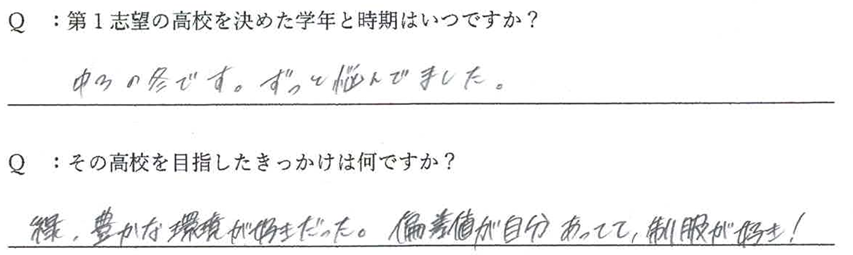 Q ：第１志望の高校を決めた学年と時期はいつですか？
中3の冬です。ずっと悩んでました。
Q ：その高校を目指したきっかけは何ですか？
緑、豊かな環境が好きだった。偏差値が自分あってて、制服が好き！